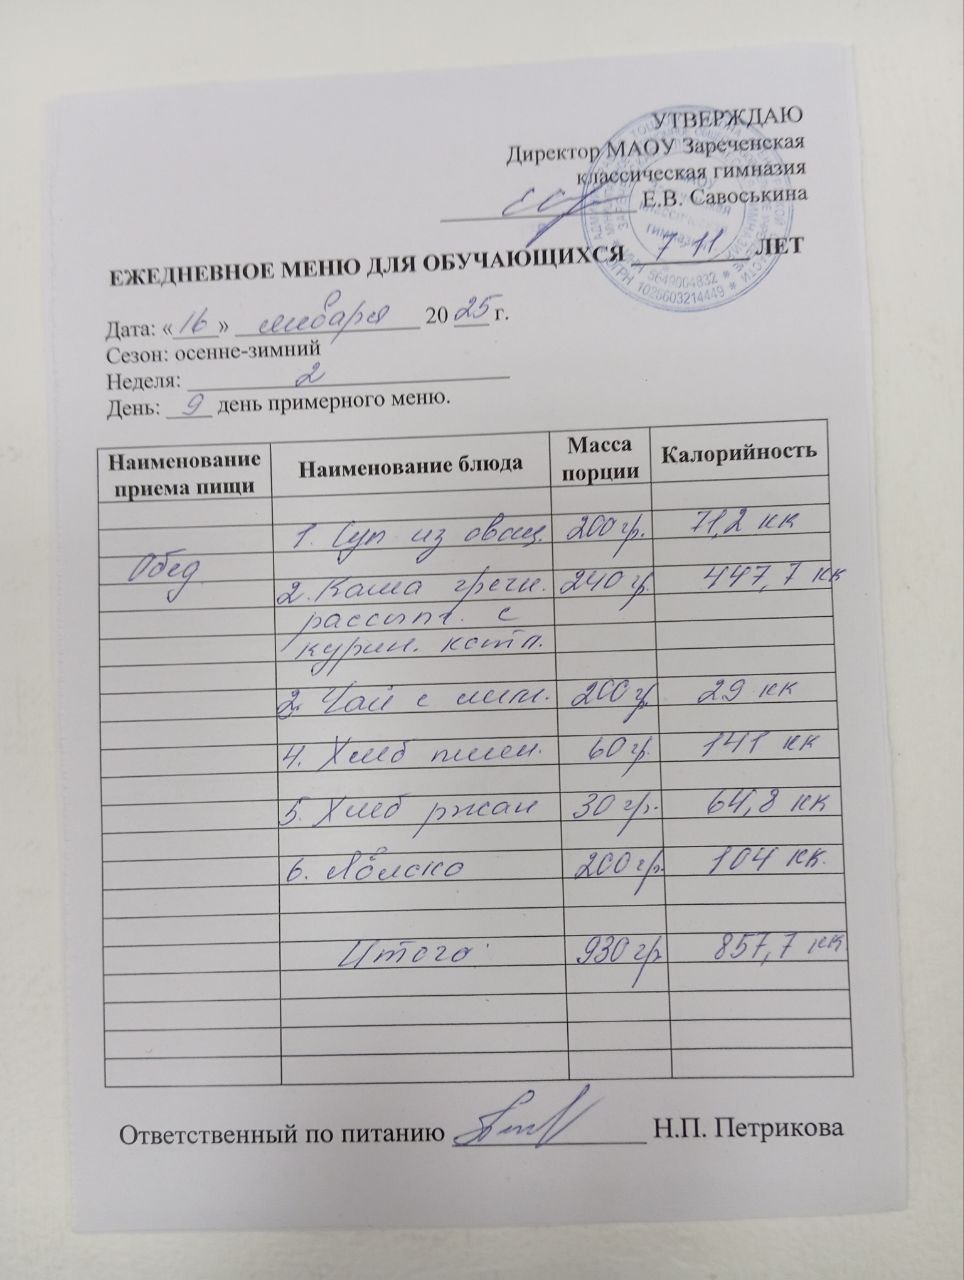 УТВЕРЖДАЮ
Директор МАОУ Зареченская
классическая гимназия
Е.В. Савоськина
ЕЖЕДНЕВНОЕ МЕНЮ ДЛЯ ОБУЧАЮЩИХСЯ 7 11 ЛЕТ
Дата: «16» января 2025 г.
Сезон: осенне-зимний
Неделя: 2
День: 9 день примерного меню.
Наименование приема пищи Наименование блюда Масса порции Калорийность
1. Суп из овощ. 200 гр. 71,2 кк
Обед
2. Каша гречн. 240 гр. 447,7 кк
рассып. с
курин. котл.
2. Чай с лим. 200 гр 29 кк
4. Хлеб пшен. 60 гр. 141 кк
5. Хлеб ржан 30 гр. 64,8 кк
6. Яблоко 200 гр. 104 кк.
Итого 930 гр 857,7 кк
Ответственный по питанию Н.П. Петрикова
5649004832
ОГРН 1025603214449